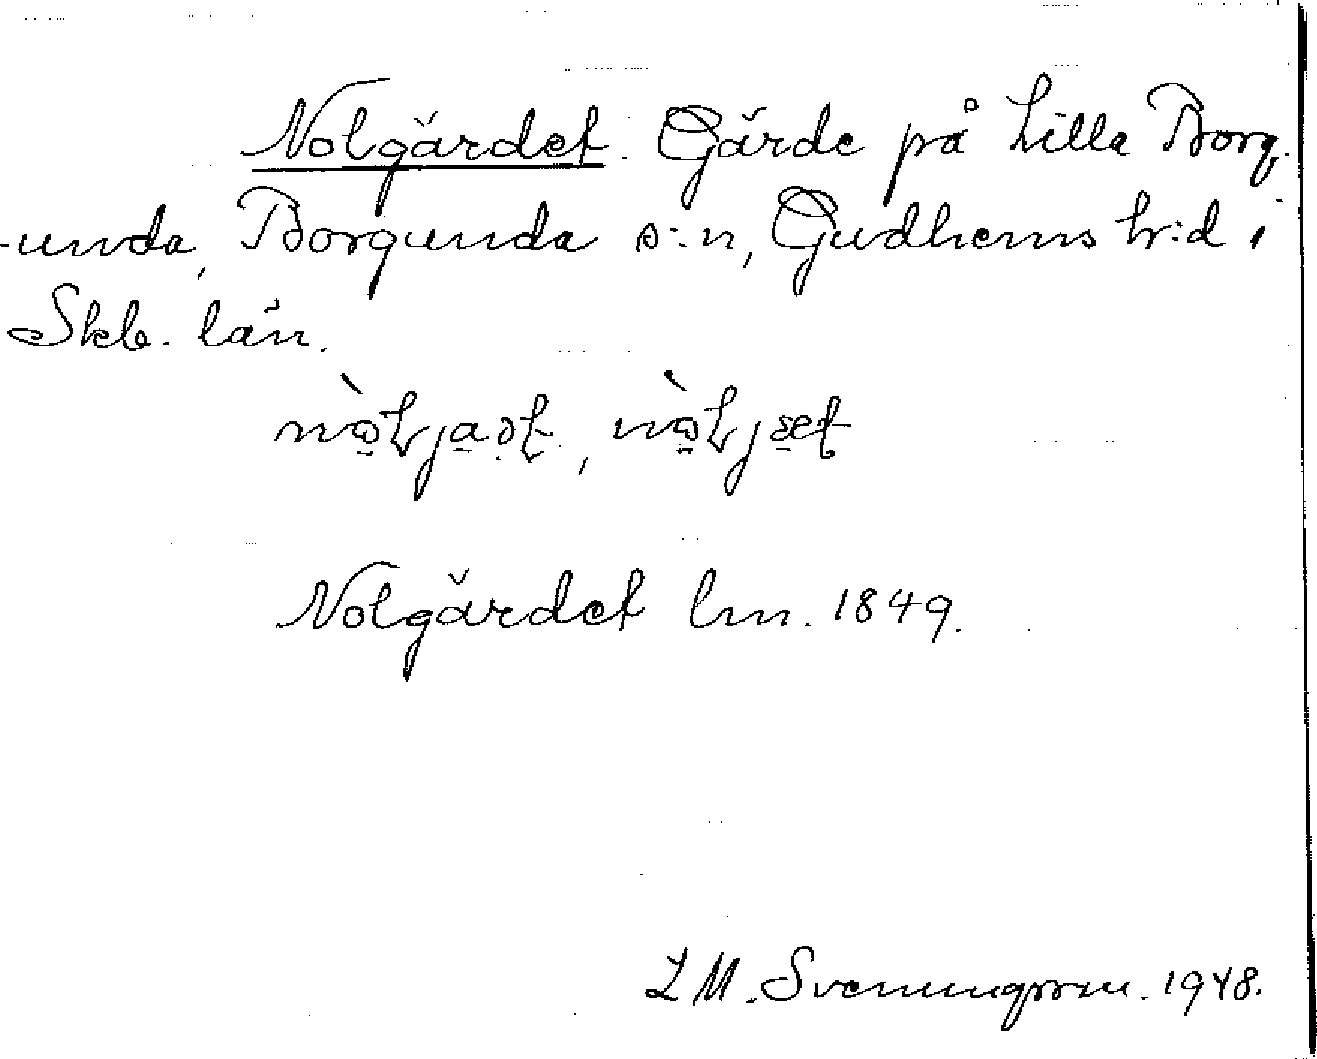 Nolgärdet. Gärde på Lilla Borg-
-unda, Borgunda s:n, Gudhems h:d i
Skb. län.
Nolgärdet lm. 1849.
L M. Svenungsson. 1948.